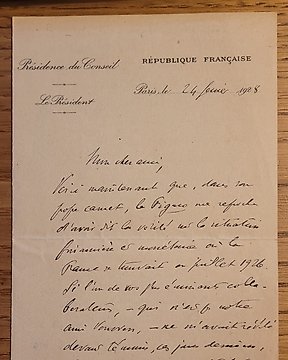 Présidence du Conseil
RÉPUBLIQUE FRANÇAISE
Le Président
Paris, le 24 1928
Mon cher ami,
Voici maintenant que, dans son
propre carnet, le Figaro me reproche
d'avoir dit la vérité sur la situation
financière et monétaire où la
France se trouvait en juillet 1926.
Si l'un de vos plus éminents colla-
borateurs, – qui n'est pas notre
ami –, ne m'avait révélé
devant témoins, ces jours derniers,